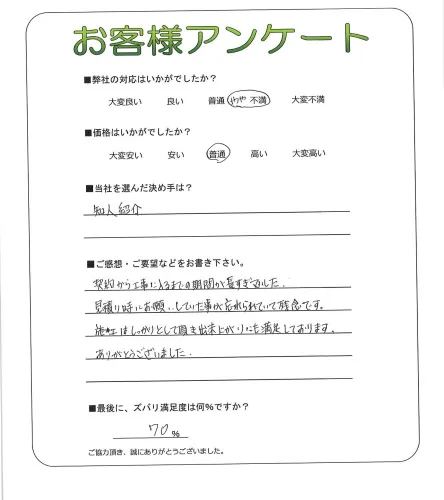 お客様アンケート
■弊社の対応はいかがでしたか?
大変良い 良い 普通 やや 不満 大変不満
■価格はいかがでしたか?
大変安い 安い 普通 高い 大変高い
■当社を選んだ決め手は?
知人紹介
■ご感想・ご要望などをお書き下さい。
契約から工事に入るまでの期間が長すぎました.
見積り時にお願いしていた事が忘れられていて残念です。
施工はしっかりとして頂き出来上がりにも満足しております。
ありがとうございました.
■最後に、ズバリ満足度は何%ですか?
70%
ご協力頂き、誠にありがとうございました。